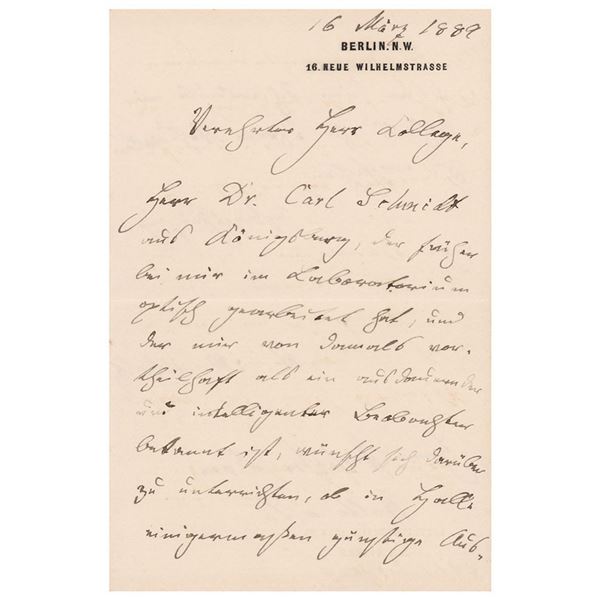 16 März 1889
BERLIN. N.W.
16. NEUE WILHELMSTRASSE
Verehrter Herr College,
Herr Dr. Carl Schmidt
aus Königsberg, der früher
bei mir im Laboratorium
optisch gearbeitet hat, und
der mir von damals vor-
theilhaft als ein ausdauernder
und intelligenter Beobachter
bekannt ist, wünscht sich darüber
zu unterrichten, ob in Halle
einigermaßen günstige Aus-